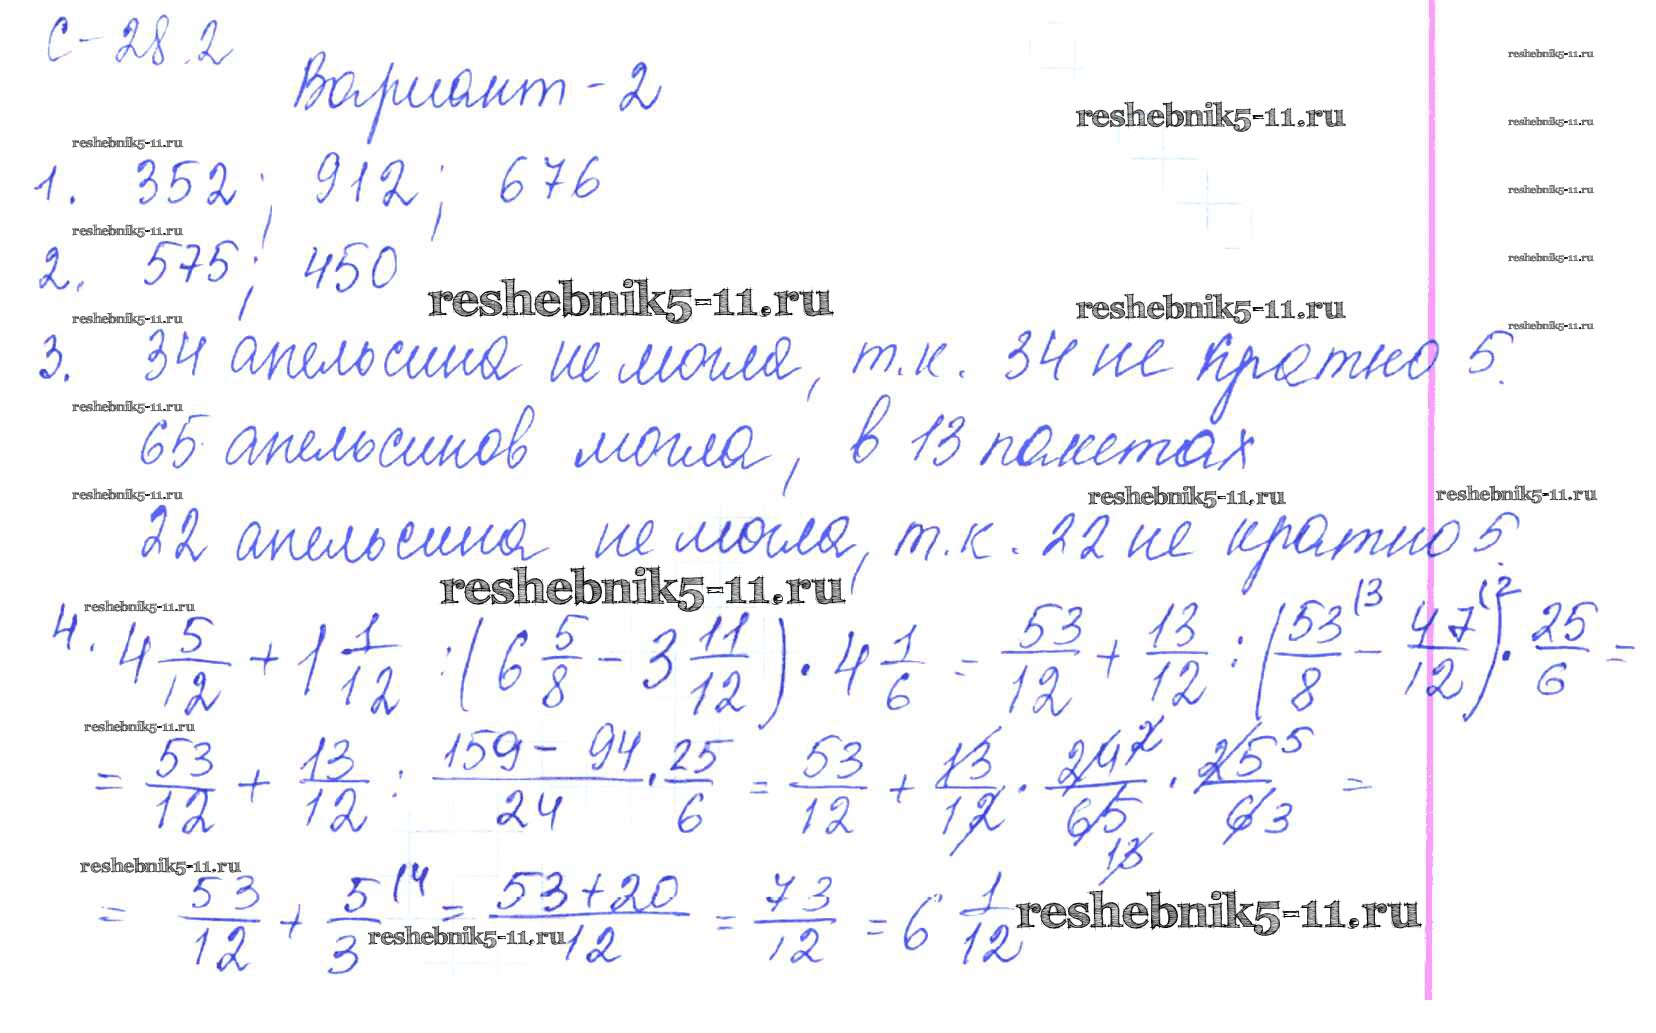 С-28.2
Вариант-2
reshebnik5-11.ru
reshebnik5-11.ru
reshebnik5-11.ru
reshebnik5-11.ru
1. 352; 912; 676
reshebnik5-11.ru
reshebnik5-11.ru
2. 575; 450
reshebnik5-11.ru
reshebnik5-11.ru
reshebnik5-11.ru
reshebnik5-11.ru
reshebnik5-11.ru
3. 34 апельсина не могла, т.к. 34 не кратно 5.
reshebnik5-11.ru
65 апельсинов могла, в 13 пакетах
reshebnik5-11.ru
reshebnik5-11.ru
reshebnik5-11.ru
22 апельсина не могла, т.к. 22 не кратно 5.
reshebnik5-11.ru
reshebnik5-11.ru
4. 4 5/12 + 1 1/12 : (6 5/8 - 3 11/12) · 4 1/6 = 53/12 + 13/12 : (53/8 (3 - 47/12 (2) · 25/6 =
reshebnik5-11.ru
= 53/12 + 13/12 : 159-94/24 · 25/6 = 53/12 + 13/12 · 24 2/65 13 · 25 5/6 3 =
reshebnik5-11.ru
= 53/12 + 5/3 (4 = 53+20/12 = 73/12 = 6 1/12
reshebnik5-11.ru
reshebnik5-11.ru